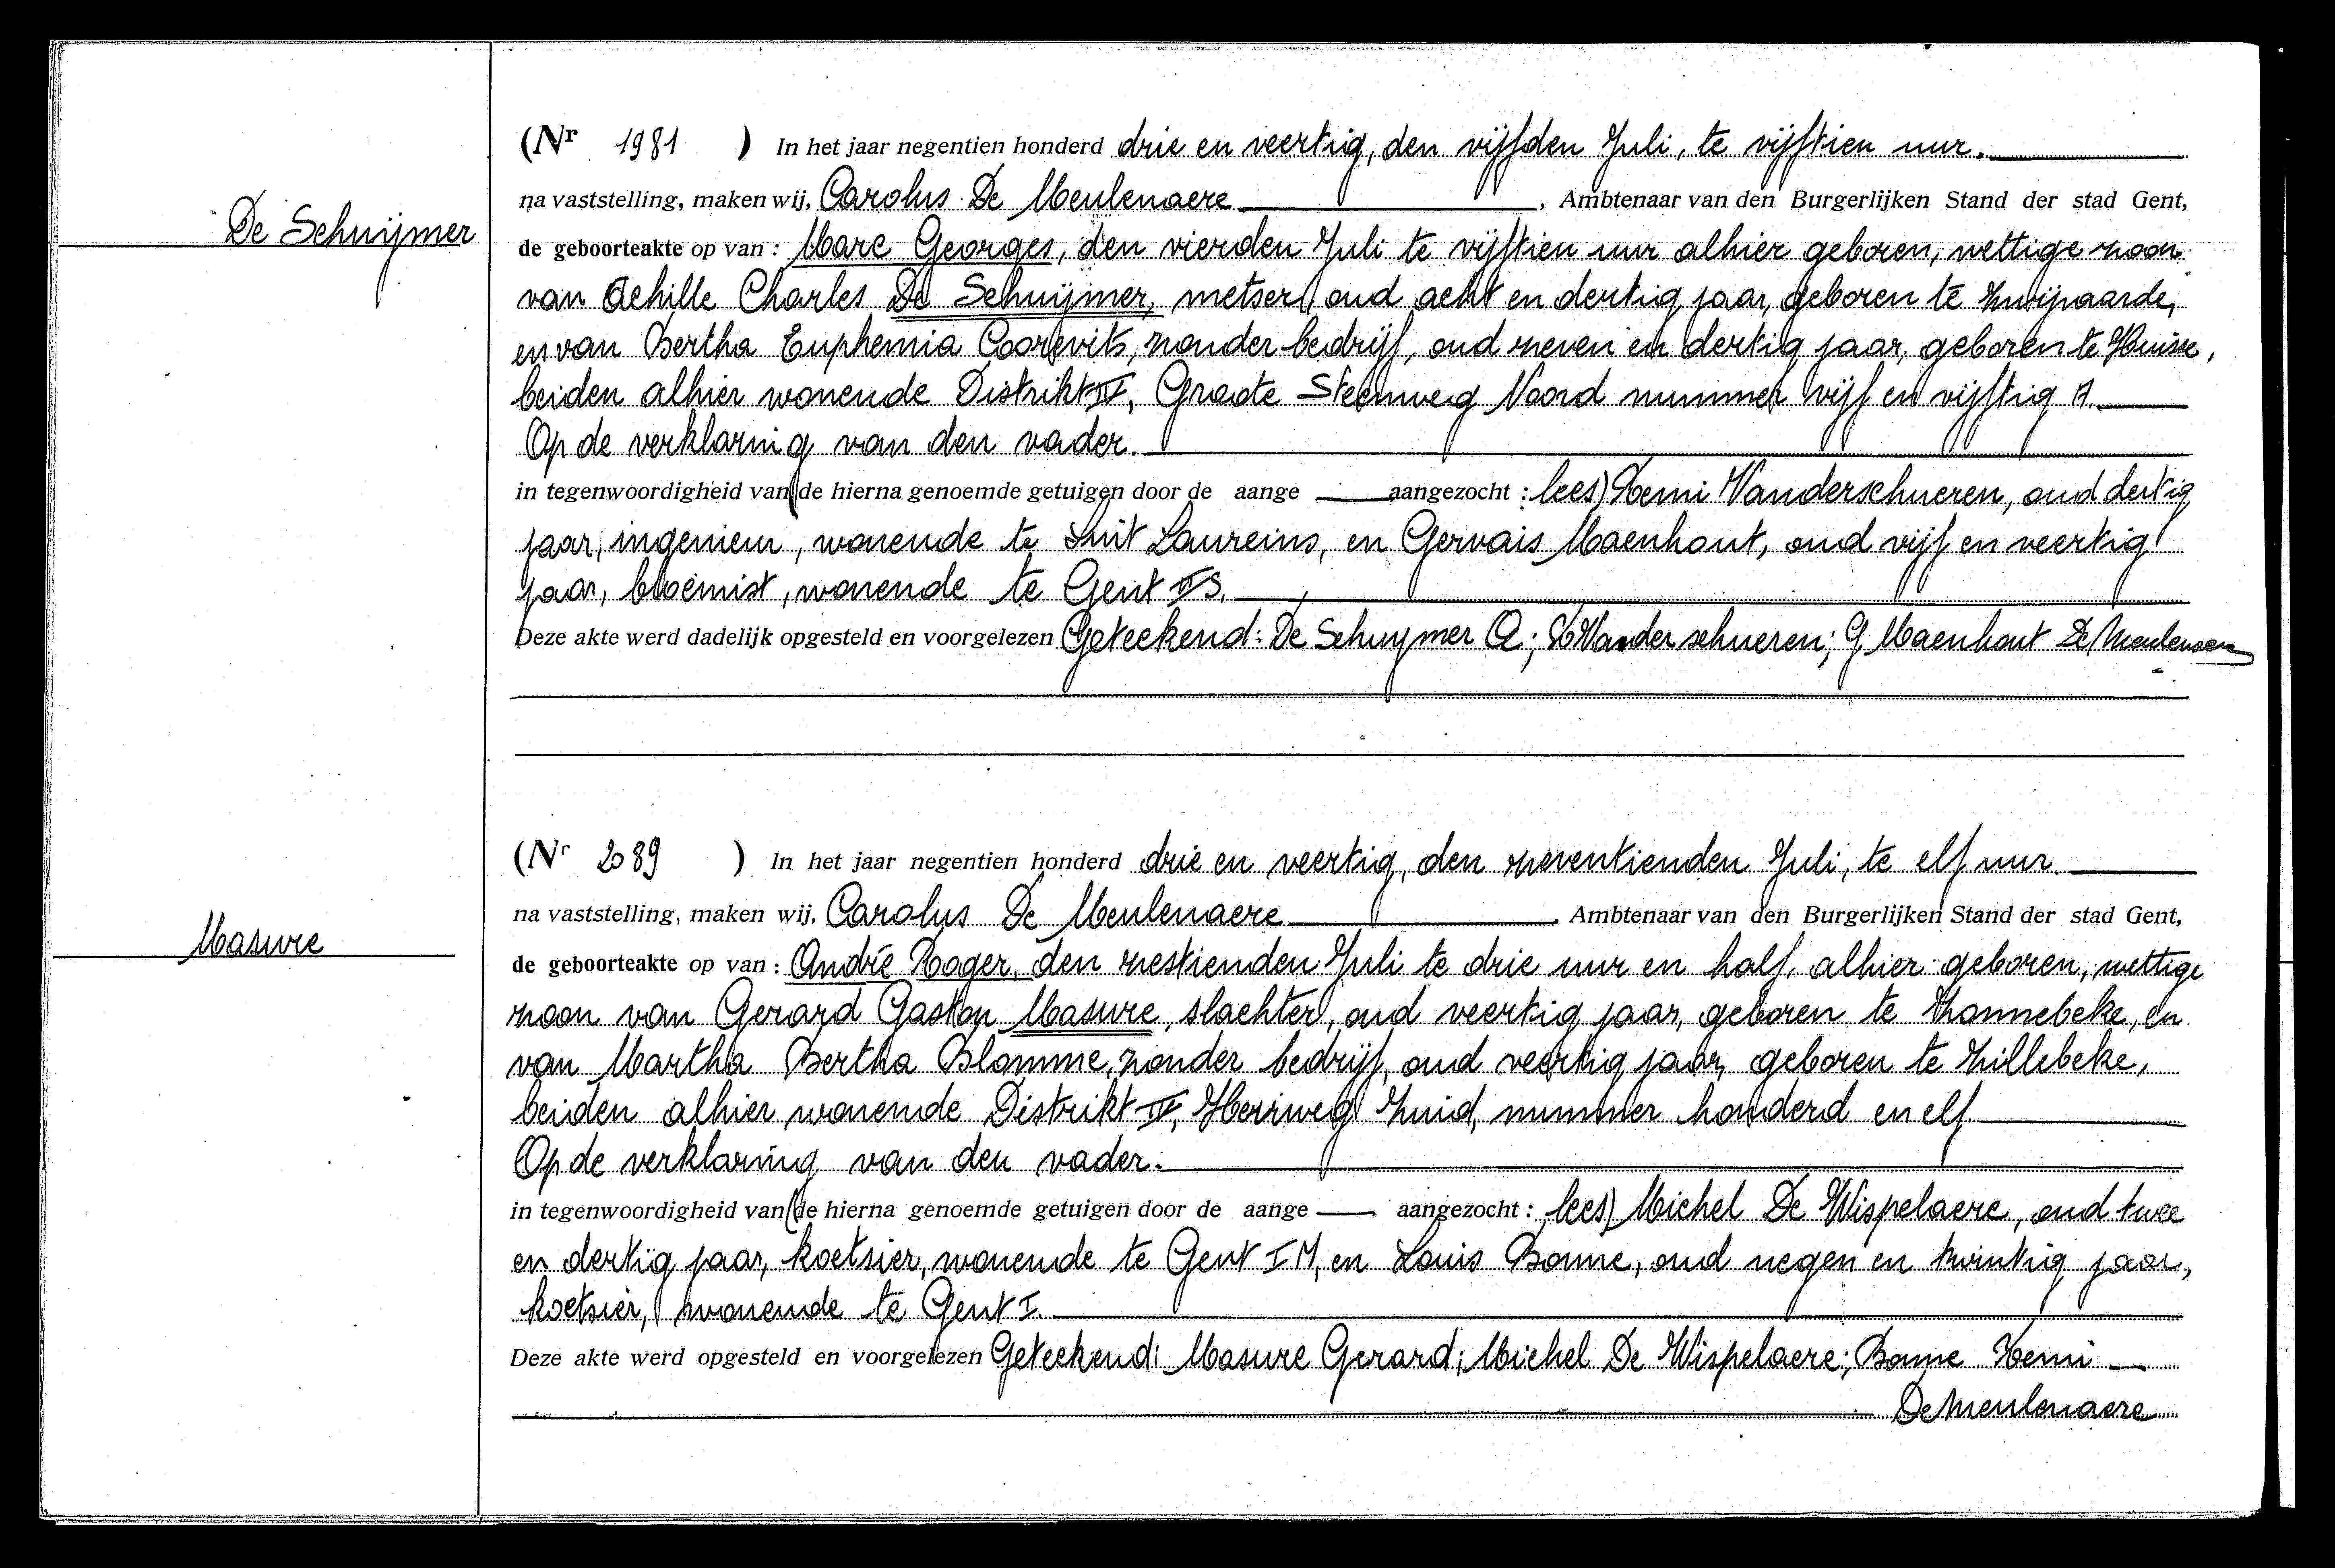 De Schuijmer
(Nr 1981 ) In het jaar negentien honderd drie en veertig, den vijfden Juli, te vijftien uur.
na vaststelling, maken wij, Carolus De Meulenaere, Ambtenaar van den Burgerlijken Stand der stad Gent,
de geboorteakte op van : Marc Georges, den vierden Juli te vijftien uur alhier geboren, wettige zoon
van Achille Charles De Schuijmer, metser, oud acht en dertig jaar, geboren te Zwijnaarde,
en van Bertha Euphemia Coorevits, zonder bedrijf, oud zeven en dertig jaar, geboren te Huise,
beiden alhier wonende Distrikt IV, Groote Steenweg Noord nummer vijf en vijftig A.
Op de verklaring van den vader.
in tegenwoordigheid van (de hierna genoemde getuigen door de aange aangezocht : lees) Remi Vanderschueren, oud dertig
jaar, ingenieur, wonende te Sint Laureins, en Gervais Maenhout, oud vijf en veertig
jaar, bloemist, wonende te Gent
Deze akte werd dadelijk opgesteld en voorgelezen Geteekend: De Schuymer A; R Vanderschueren; G Maenhout De Meulenaere
Masure
(Nr 2089 ) In het jaar negentien honderd drie en veertig, den zeventienden Juli, te elf uur.
na vaststelling, maken wij, Carolus De Meulenaere, Ambtenaar van den Burgerlijken Stand der stad Gent,
de geboorteakte op van : André Roger, den zestienden Juli te drie uur en half, alhier geboren, wettige
zoon van Gerard Gaston Masure, slachter, oud veertig jaar, geboren te Zonnebeke, en
van Martha Bertha Blomme, zonder bedrijf, oud veertig jaar, geboren te Zillebeke,
beiden alhier wonende Distrikt IV, Heirweg Zuid, nummer honderd en elf
Op de verklaring van den vader.
in tegenwoordigheid van (de hierna genoemde getuigen door de aange aangezocht : lees) Michel De Wispelaere, oud twee
en dertig jaar, koetsier, wonende te Gent I M, en Louis Bonne, oud negen en twintig jaar,
koetsier, wonende te Gent I.
Deze akte werd opgesteld en voorgelezen Geteekend: Masure Gerard; Michel De Wispelaere; Bonne Remi
De Meulenaere